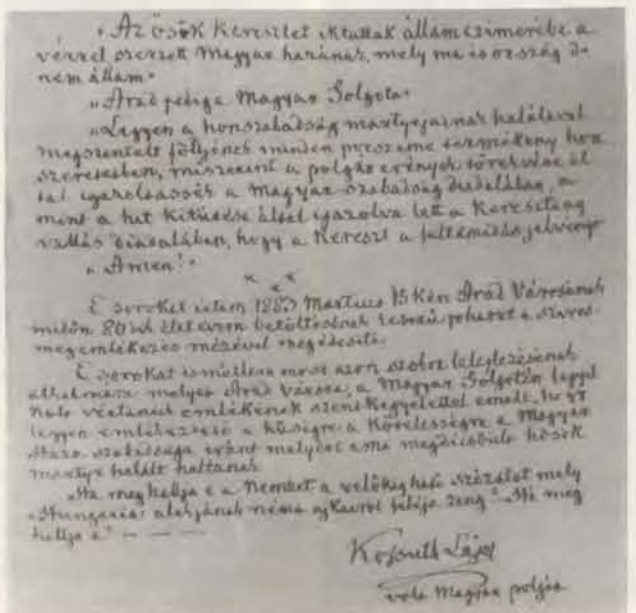 "Az ősök Keresztet iktattak állam czimerébe a
vérrel szerzett Magyar hazának, mely ma is ország de
nem állam"
"Arad pedig a Magyar Golgota"
"Legyen a honszabadság martyrjainak halálával
megszentelt földjének minden porszeme termékeny hon
szeretetben, miszerint a polgár erények törekvése ál
tal igazoltassék a Magyar szabadság diadalában, a
mint a hit kitűzése által igazolva lett a Keresztény
vallás diadalában, hogy a Kereszt a feltámadás jelvénye
"Amen!"
E sorokat irtam 1883 Martius 15kén Arad Városának
midőn 80ik életévem betöltésének szivós
megemlékezés mézével megédesité.
E sorokat ismétlem most azon szobor leleplezésének
alkalmára melyet Arad városa, a Magyar Golgotán
vértanúk emlékének szent kegyelettel emelt, hogy
legyen emlékeztető a hűségre a Követlességre a Magyar
Haza szabadsága iránt melyért ama megdicsőült hősök
martyr halált haltanak
"Ha meghallja é a Nemzet a velőkig ható szózatot mely
"Hungaria" alakjának néma ajkairól feléje zeng? Ha meg
hallja é? — — —
Kossuth Lajos
volt Magyar polgár